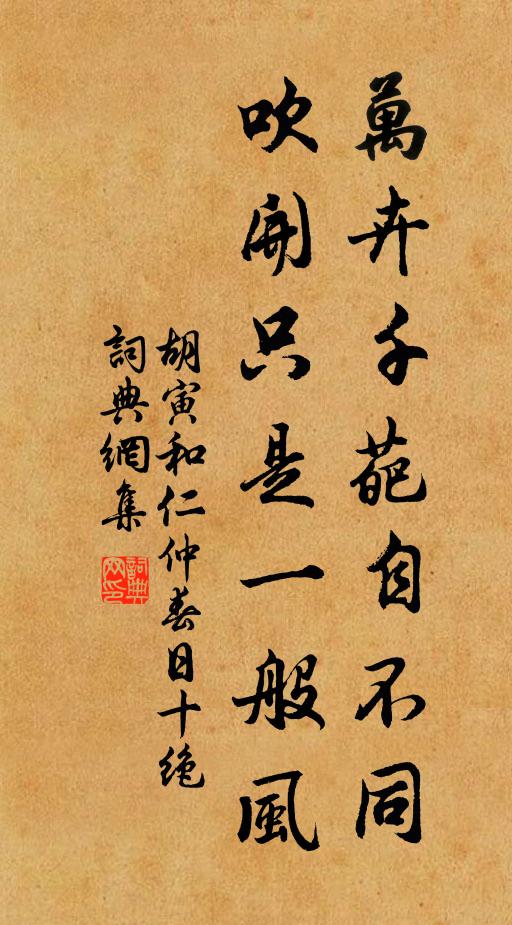 萬卉千葩自不同
吹開只是一般風
胡寅和仁仲春日十絶
詞典網集
詞典网印